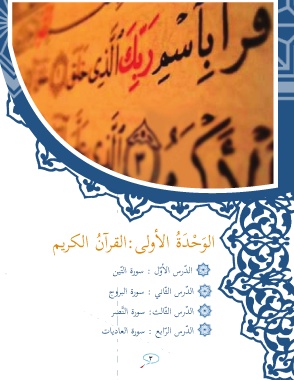 اقرأ بِاسْمِ رَبِّكَ الَّذِي خَلَقَ
الأَكْرَمُ
الوَحْدَةُ الأولى: القرآنُ الكريم
الدّرس الأوّل : سورة التّين
الدّرس الثّاني : سورة البروج
الدّرس الثّالث: سورة النَّصر
الدّرس الرّابع : سورة العاديات
٣